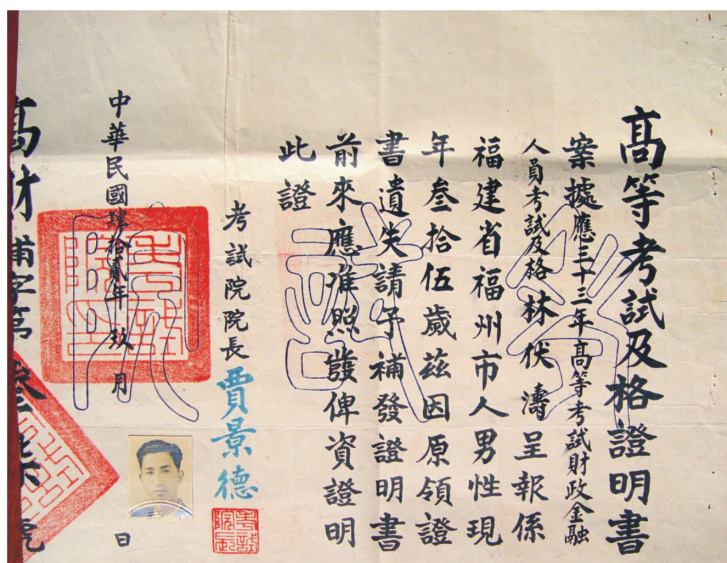 高等考試及格證明書
案據應三十三年高等考試財政金融
人員考試及格林伏濤呈報係
福建省福州市人男性現
年叁拾伍歲茲因原領證
書遺失請予補發證明書
前來應准照發俾資證明
此證
考試院院長賈景德
考試院長
中華民國肆拾貳年玖月 日
考試院印
高財補字第叁 號